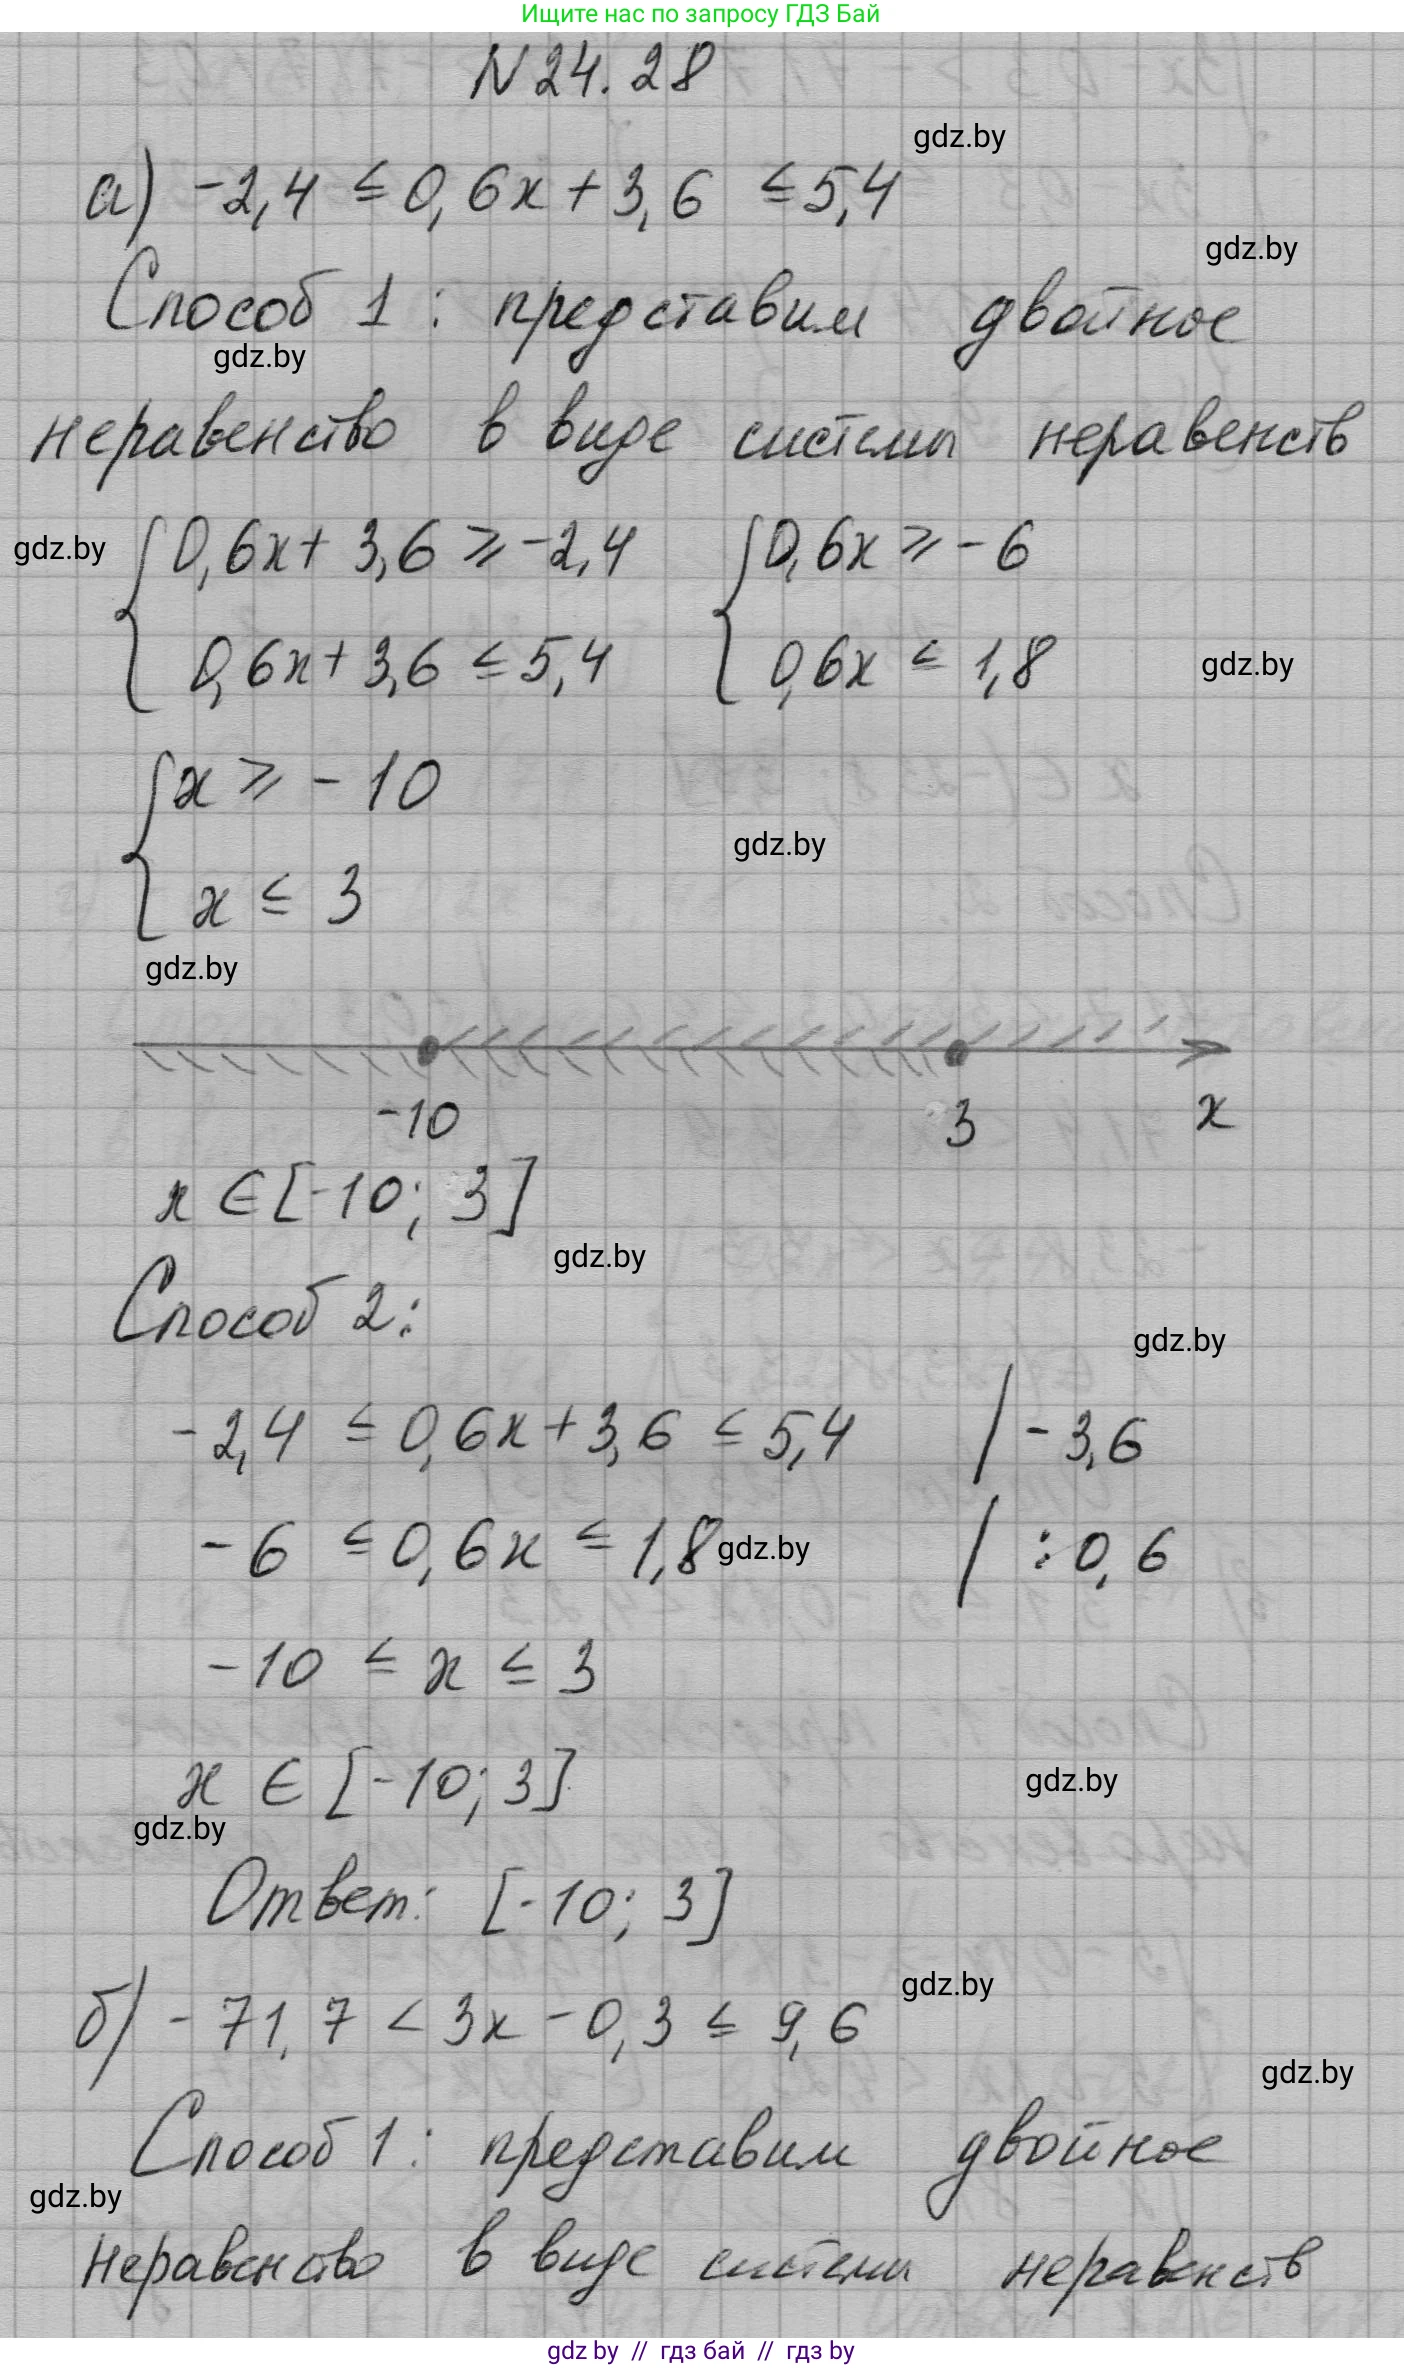 Ищите нас по запросу ГДЗ Бай
N 24.28
gdz.by
а) -2,4 ≤ 0,6x + 3,6 ≤ 5,4
gdz.by
Способ 1 : представим двойное
gdz.by
неравенство в виде системы неравенств
{ 0,6x + 3,6 ⩾ -2,4 { 0,6x ⩾ -6
gdz.by
0,6x + 3,6 ≤ 5,4 0,6x ≤ 1,8
gdz.by
{ x ⩾ -10
gdz.by
x ≤ 3
gdz.by
-10 3 x
x ∈ [-10; 3]
gdz.by
Способ 2:
gdz.by
-2,4 ≤ 0,6x + 3,6 ≤ 5,4 | -3,6
-6 ≤ 0,6x ≤ 1,8 | : 0,6
gdz.by
-10 ≤ x ≤ 3
x ∈ [-10; 3]
gdz.by
gdz.by
Ответ: [-10; 3]
gdz.by
б) -71,7 < 3x - 0,3 ≤ 9,6
gdz.by
Способ 1 : представим двойное
gdz.by
неравенство в виде системы неравенств
gdz by // гдз бай // гдз by